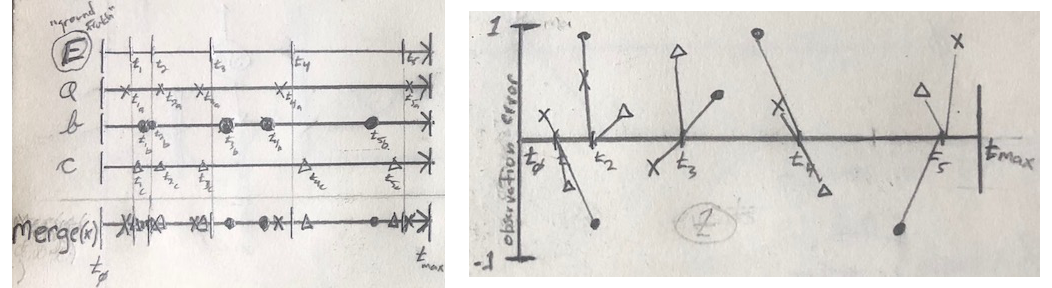 "ground truth"
E t₁ t₂ t₃ t₄ t₅
a t₁ₐ t₂ₐ t₃ₐ t₄ₐ t₅ₐ
b t₁b t₂b t₃b t₄b t₅b
c t₁c t₂c t₃c t₄c t₅c
Merge(x)
tø tmax
1
observation error
tø t₁ t₂ t₃ t₄ t₅ tmax
-1